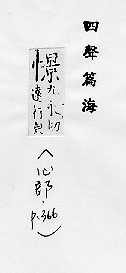 四聲篇海
憬
九永切
遠行皃
(心部.
p.366)